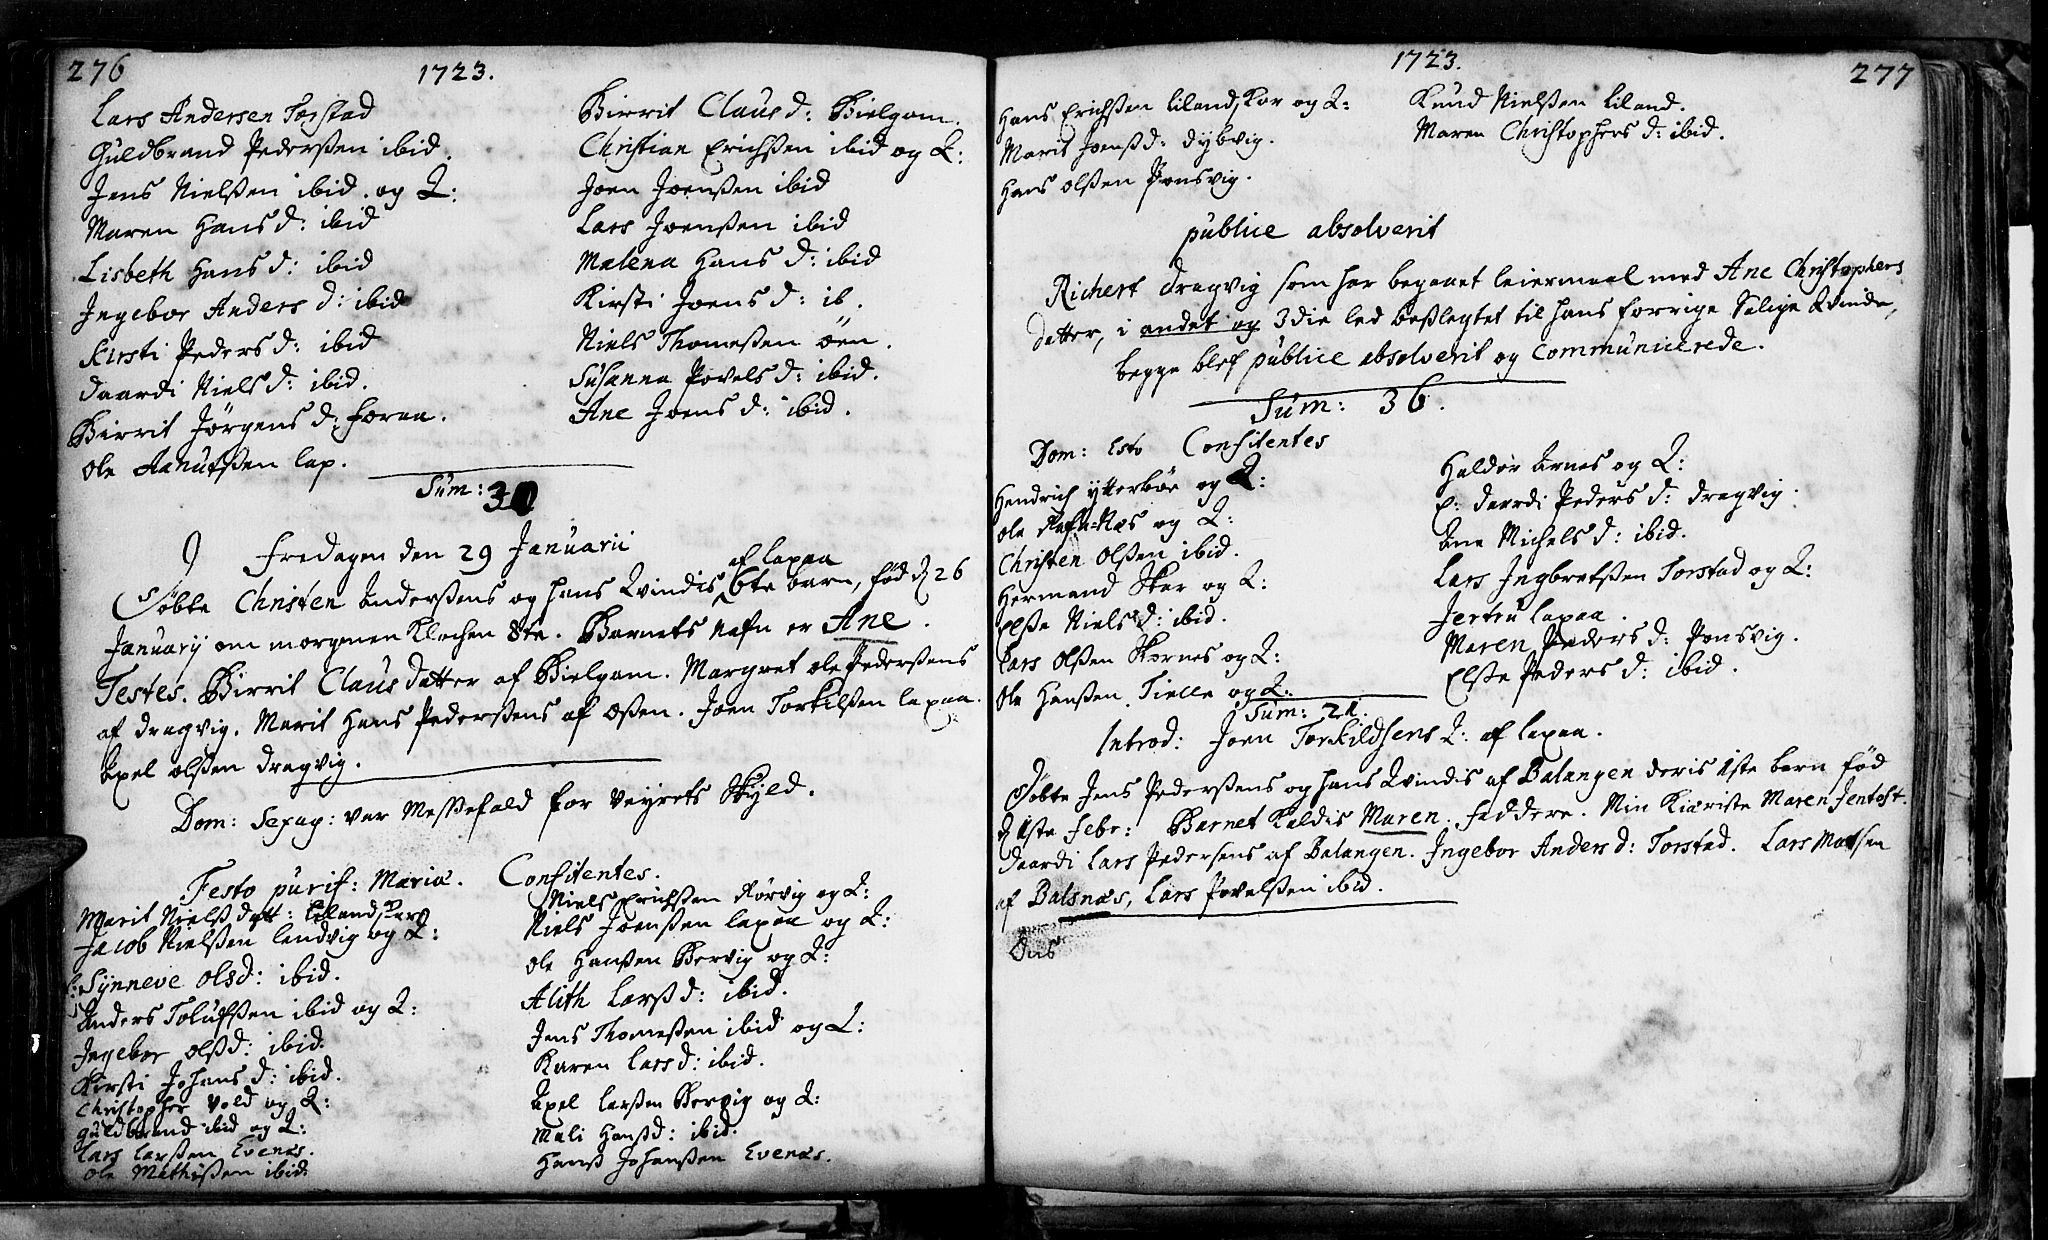 276
1723.
Lars Andersen Torstad
Guldbrand Pederßen ibid.
Jens Nielßen ibid. og Q:
Maren Hans d: ibid
Lisbeth Hans d: ibid
Ingebor Anders d: ibid
Kirsti Peders d: ibid
Daardi Niels d: ibid.
Birrit Jörgens d: Foraa.
Ole Knutßen lap.
Birrit Claus d: Bielgam.
Christian Erichßen ibid og Q:
Joen Joenßen ibid
Lars Joenßen ibid
Malena Hans d: ibid
Kirsti Joens d: ib.
Niels Thomeßen öen.
Susanna Povels d: ibid.
Ane Joens d: ibid.
Sum: 30
Fredagen den 29 Januarii
af laxaa
Döbte Christen Anderßens og hans Qvindis 6te barn, fød d 26
Januarij om morgenen Klochen 8te. Barnets Nafn er Ane.
Testes. Birrit Claus datter af Bielgam. Margret ole Pederßens
af dragvig. Marit Hans Pederßens af oßen. Joen Torkilßen laxaa.
Axel olßen dragvig.
Dom: Sexag: var Meßefald for Veyrets Skyld.
Festo purif: Mariæ. Confitentes.
Marit Nielß datt: lilandskar
Jacob Nielßen lendvig og Q:
Synneve Ols d: ibid.
Anders Tolufßen ibid og Q:
Ingebor Olß d: ibid.
Kirsti Johans d: ibid.
Christopher Vold og Q:
Guldbrand ibid og Q:
Lars Larßen Evenes.
Ole Mathißen ibid.
Niels Erichßen Rörvig og Q:
Niels Joenßen laxaa og Q:
Ole Hanßen Bervig og Q:
Alith Larß d: ibid.
Jens Thomeßen ibid og Q:
Karen Lars d: ibid.
Axel Larßen Bervig og Q:
Mali Hanß d: ibid.
Hanß Johanßen Evenæs.
1723.
277
Hans Erichßen lilandskar og Q:
Marit Joenß d: dybvig.
Hans olßen Ponsvig.
Knud Nielßen liland.
Maren Christophers d: ibid.
publice absolverit
Richert dragvig som har begaaet leiermaal med Ane Christophers
datter, i andet og 3die led beßlegtet til hans forrige Salige Qvinde,
begge blef publice absolverit og Communicerede.
Sum: 36.
Dom: Esto Confitentes
Hendrich ytterböe og Q:
Ole Rafn=Næs og Q:
Christen Olßen ibid.
Hermand Skar og Q:
Elße Niels d: ibid.
Lars Olßen Skornes og Q:
Ole Hanßen Tielle og Q.
Haldor Arnes og Q:
E: daardi Peders d: dragvig.
Ane Michels d: ibid.
Lars Ingbretßen Torstad og Q:
Jertru laxaa.
Maren Peders d: Ponsvig.
Elße Peders d: ibid.
Sum: 21.
Introd: Joen Torkildsens Q: af laxaa.
Döbte Jens Pederßens og hans Qvindis af Balangen deris 1ste barn fød
d 1ste Febr: Barnet Kaldis Maren. Faddere. Min Kiæriste Maren Jentoft.
Daardi Lars Pedersens af Balangen. Ingebor Anders d: Torstad. Lars Matsen
af Balsnæs, Lars Povelßen ibid.